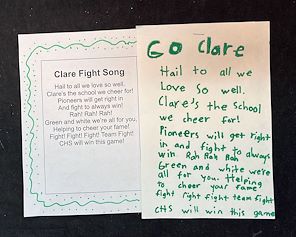 Clare Fight Song
Hail to all we love so well.
Clare's the school we cheer for!
Pioneers will get right in
And fight to always win!
Rah! Rah! Rah!
Green and white we're all for you,
Helping to cheer your fame!
Fight! Fight! Fight! Team Fight!
CHS will win this game!
Go Clare
Hail to all we
Love So well.
Clare's the school
we cheer for!
Pioneers will get right
in and fight to always
win Rah Rah Rah
Green and white we're
all for you. Helping
to cheer your fame
fight fight fight team fight
CHS will win this game